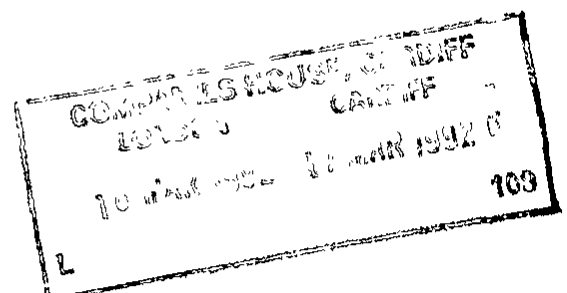 COMPANIES HOUSE, CARDIFF
LONDON CARDIFF
10 MAR 1992 11 MAR 1992
L 109